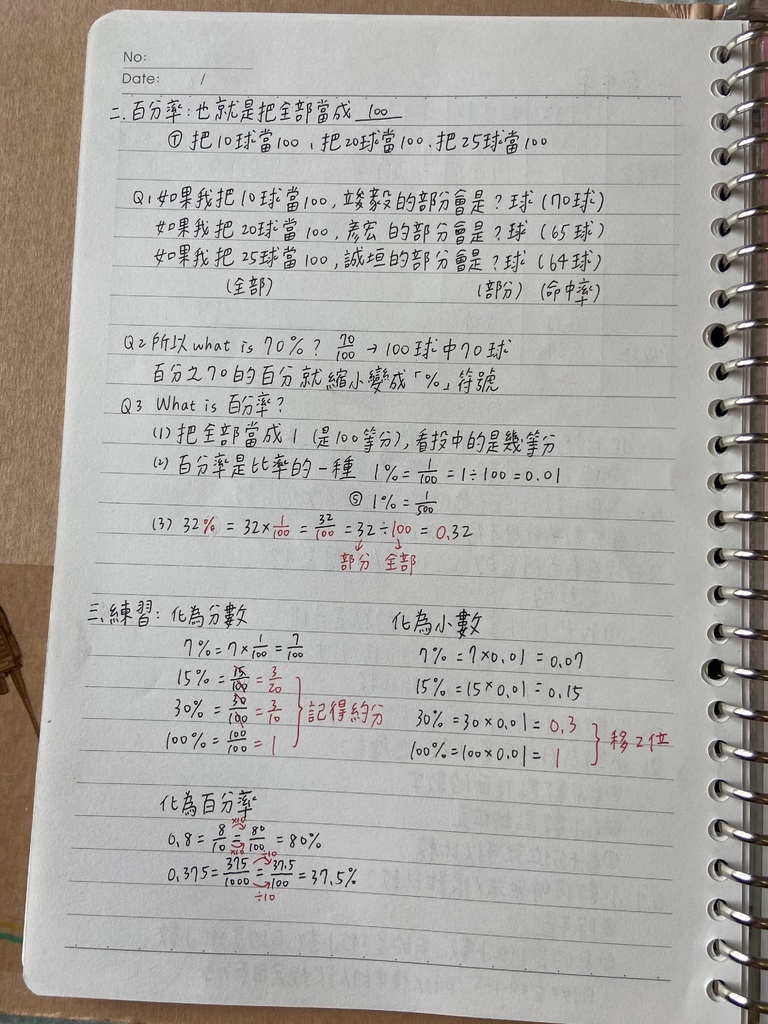 No:
Date: /
二. 百分率:也就是把全部當成 100
Ⓣ 把10球當100、把20球當100、把25球當100
Q1 如果我把10球當100,竣毅的部分會是?球(70球)
如果我把20球當100,彥宏的部分會是?球(65球)
如果我把25球當100,誠垣的部分會是?球(64球)
(全部) (部分) (命中率)
Q2 所以 what is 70%? 70/100 → 100球中70球
百分之70的百分就縮小變成「%」符號
Q3 What is 百分率?
(1) 把全部當成1 (是100等分),看投中的是幾等分
(2) 百分率是比率的一種 1%=1/100=1÷100=0.01
Ⓢ 1%=1/500
(3) 32%=32×1/100=32/100=32÷100=0.32
部分 全部
三.練習:化為分數 化為小數
7%=7×1/100=7/100 7%=7×0.01=0.07
15%=15/100=3/20 15%=15×0.01=0.15
30%=30/100=3/10 記得約分 30%=30×0.01=0.3
100%=100/100=1 100%=100×0.01=1 移2位
化為百分率
×10
0.8=8/10=80/100=80%
×10 ÷10
0.375=375/1000=37.5/100=37.5%
÷10